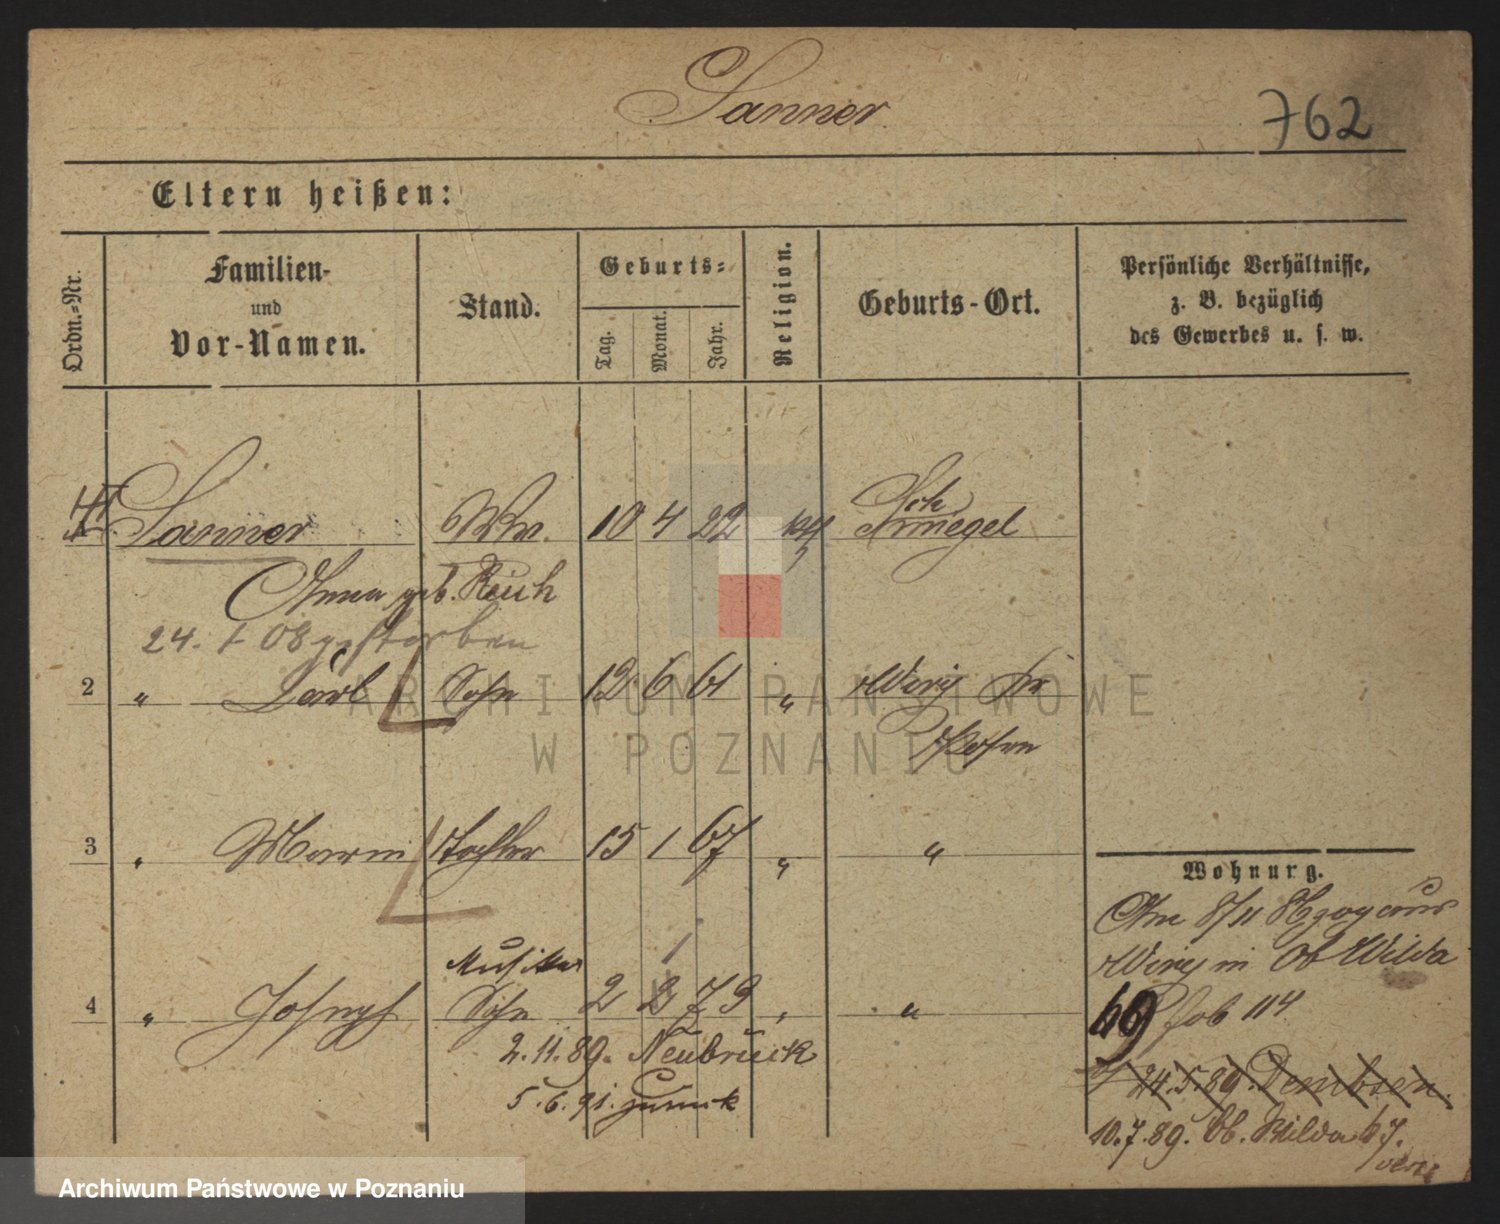 Sanner
762
Eltern heißen:
Ordn.-Nr.
Familien-
und
Vor-Namen.
Stand.
Geburts-
Tag.
Monat.
Jahr.
Religion.
Geburts-Ort.
Persönliche Verhältnisse,
z. B. bezüglich
des Gewerbes u. s. w.
Sanner Ww. 10 4 22
Schmiegel
Anna geb. Reich
24. 1 08 gestorben
2 " Carl Sohn 12 6 61 "
Posen
3 " Marie Tochter 15 1 67 " "
Wohnung.
Musiker
4 " Joseph Sohn 2 2 79 " "
2.11.89. Neubrück
5.6.91. zurück
in Ob Wilda
69
114
24.5.89. Dembsen.
10.7.89. Ob. Wilda 67.
ARCHIWUM PAŃSTWOWE
W POZNANIU
Archiwum Państwowe w Poznaniu